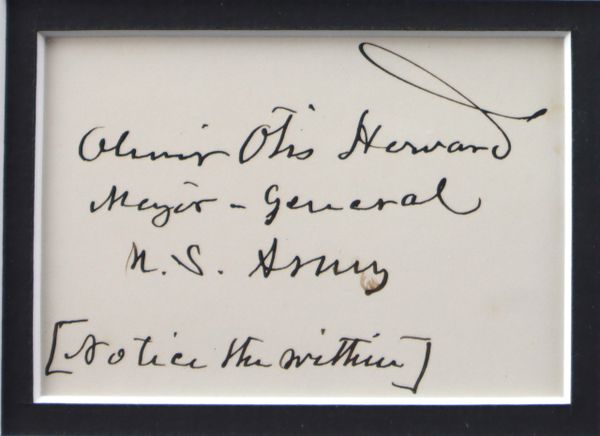 Oliver Otis Howard
Major-General
U.S. Army
[Notice the within]